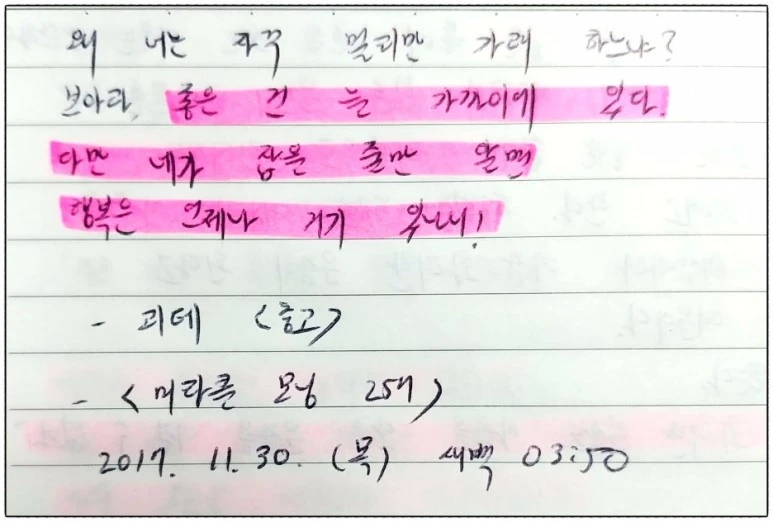 왜 너는 자꾸 멀리만 가려 하느냐?
보아라, 좋은 건 늘 가까이에 있다.
다만 네가 잡을 줄만 알면
행복은 언제나 거기 있나니!
- 괴테 <충고>
- <미라클 모닝 25대>
2017. 11. 30. (목) 새벽 03:50